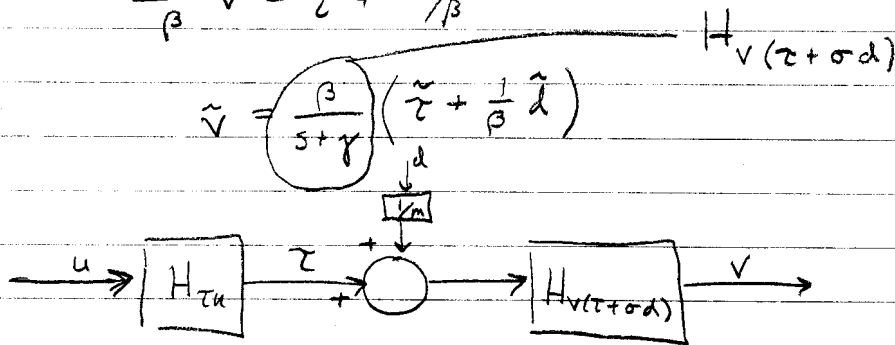 β V = τ + /β
H_{V(τ+σd)}
Ṽ = β/(s+γ) (τ̃ + 1/β d̃)
d
1/m
+
u H_{τu} τ + H_{V(τ+σd)} V